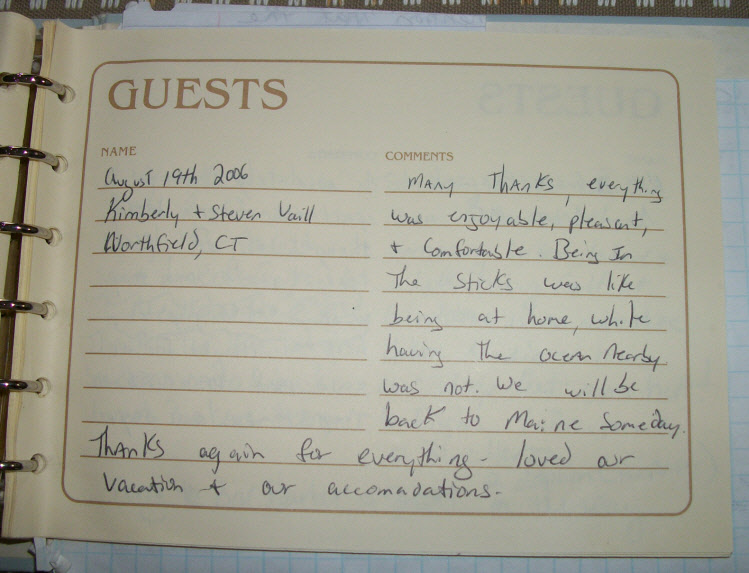 GUESTS
NAME
August 19th 2006
Kimberly + Steven Vaill
Northfield, CT
COMMENTS
Many Thanks, everything
was enjoyable, pleasant,
+ comfortable. Being In
The Sticks was like
being at home, while
having the ocean nearby
was not. We will be
back to Maine Someday.
Thanks again for everything - loved our
vacation + our accomadations.